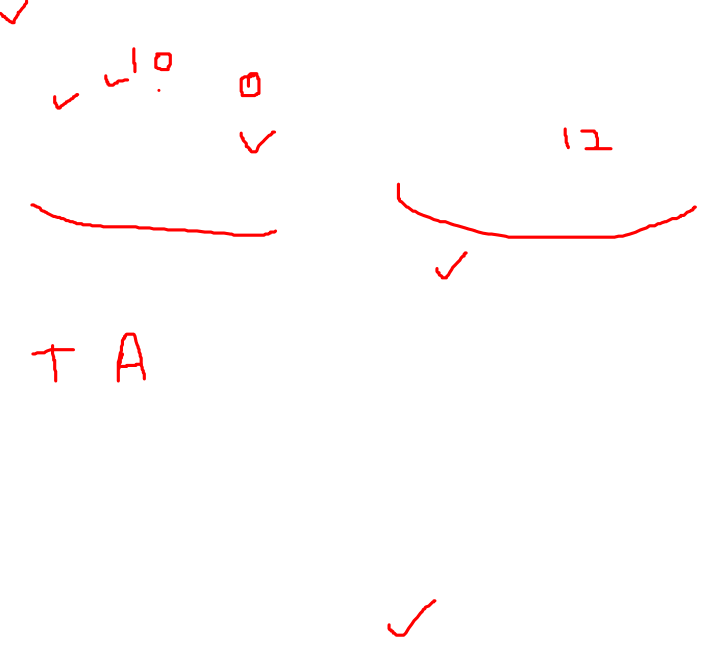 10 0
12
TA